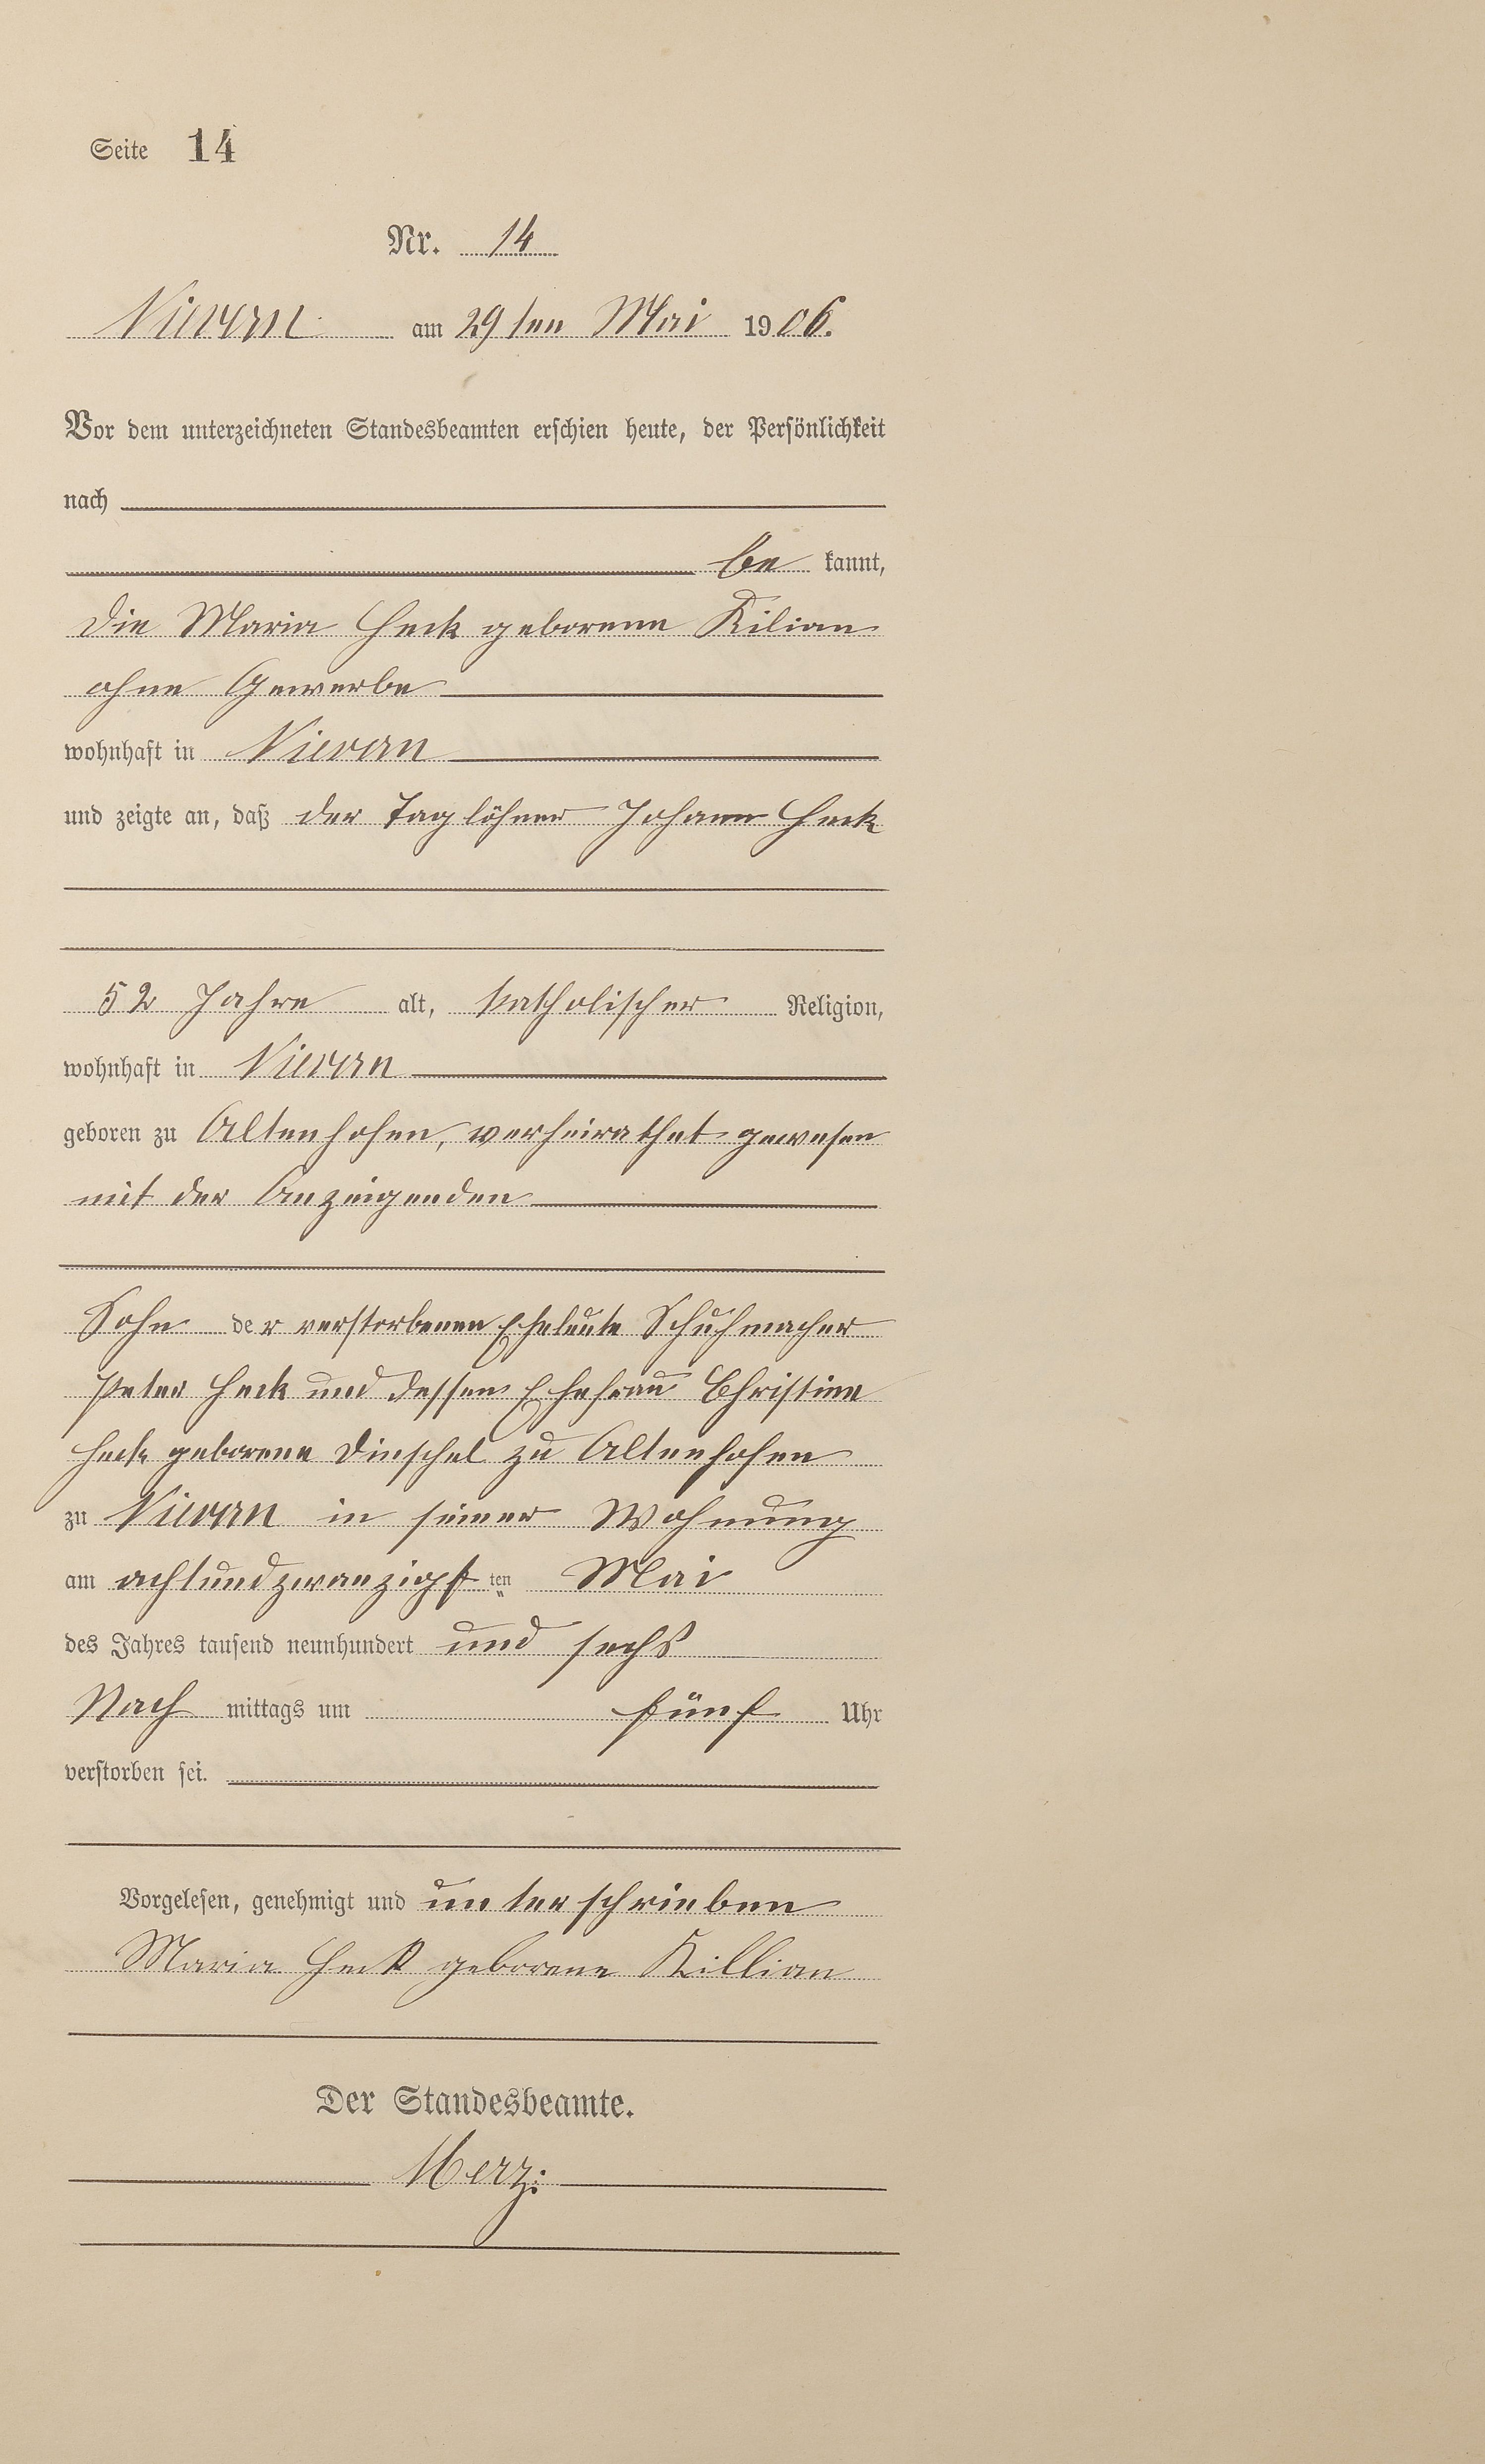 Seite 14
Nr. 14
Nievern am 29ten Mai 1906.
Vor dem unterzeichneten Standesbeamten erschien heute, der Persönlichkeit
nach
be kannt,
die Maria Heck geborene Kilian
ohne Gewerbe
wohnhaft in Nievern
und zeigte an, daß der Taglöhner Johann Heck
52 Jahre alt, katholischer Religion,
wohnhaft in Nievern
geboren zu Altenhofen, verheirathet gewesen
mit der Anzeigenden
Sohn der verstorbenen Eheleute Schuhmacher
Peter Heck und dessen Ehefrau Christine
Heck geborene Dinschel zu Altenhofen
zu Nievern in seiner Wohnung
am achtundzwanzigsten Mai
des Jahres tausend neunhundert und sechs
Nach mittags um fünf Uhr
verstorben sei.
Vorgelesen, genehmigt und unterschrieben
Maria Heck geborene Killian
Der Standesbeamte.
Merz: